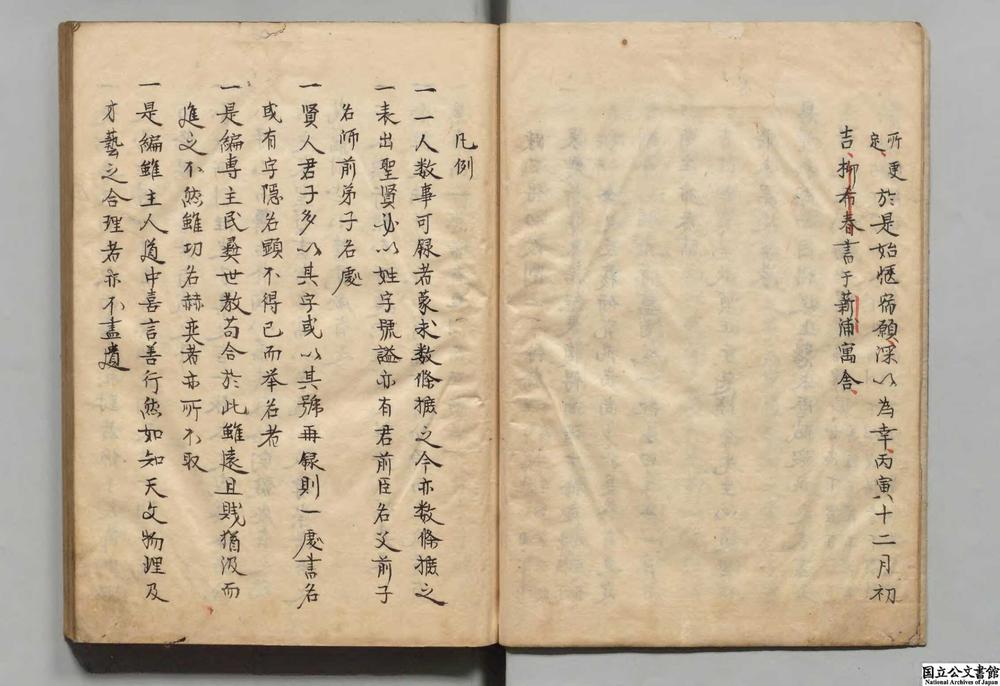 所更定於是始愜宿願深以為幸丙寅十二月初
吉柳希春書于薪浦寓舎
凡例
一一人数事可録者蒙求数條摭之今亦数條摭之
一表出聖賢必以姓字號謚亦有君前臣名父前子
名師前弟子名處
一賢人君子多以其字或以其號再録則一處書名
或有字隠名顕不得已而举名者
一是編專主民彛世教苟合於此雖遠且賎猶汲而
進之不然雖功名赫奕者亦所不取
一是編雖主人道中喜言善行然如知天文物理及
才藝之合理者亦不盡遺
国立公文書館
National Archives of Japan